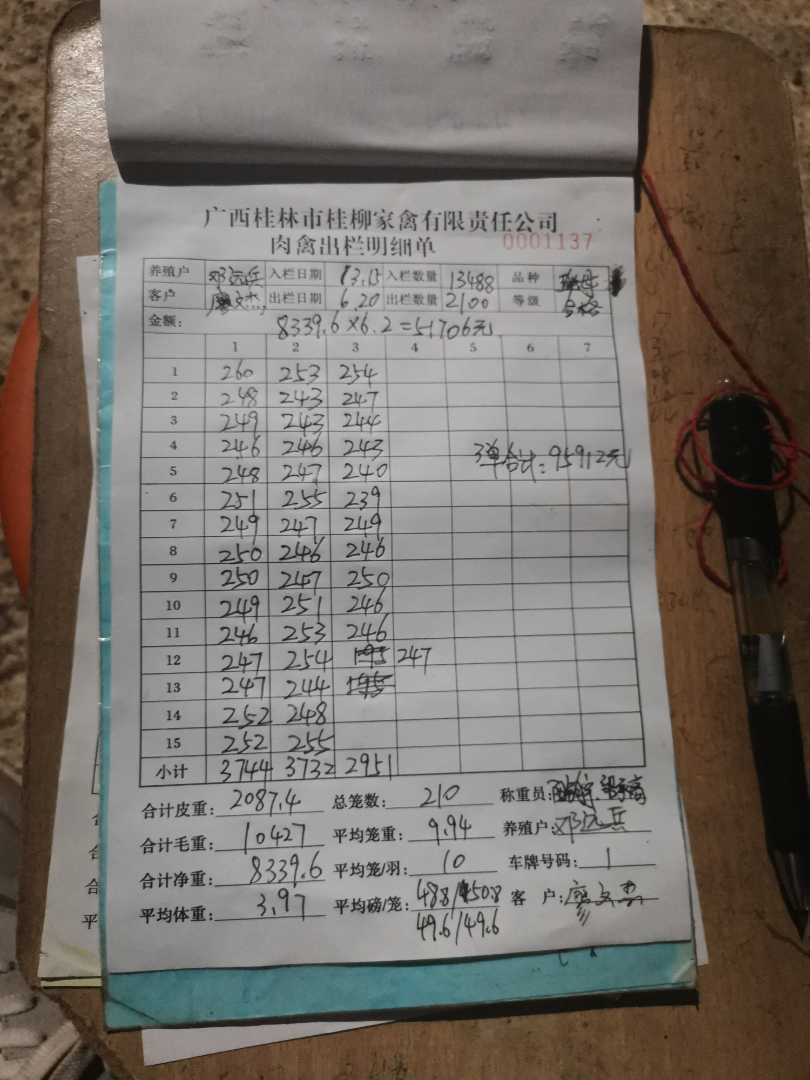 广西桂林市桂柳家禽有限责任公司
肉禽出栏明细单 0001137
养殖户 邓远兵 入栏日期 13.15 入栏数量 13488 品种
客户 廖文杰 出栏日期 6.20 出栏数量 2100 等级 合格
金额: 8339.6×6.2=51706元
1 2 3 4 5 6 7
1 260 253 254
2 248 243 247
3 249 243 244
4 246 246 243
3单合计:95912元
5 248 247 240
6 251 255 239
7 249 247 249
8 250 246 246
9 250 247 250
10 249 251 246
11 246 253 246
12 247 254 195 247
13 247 244 195
14 252 248
15 252 255
小计 3744 3732 2951
合计皮重: 2087.4 总笼数: 210 称重员:
合计毛重: 10427 平均笼重: 9.94 养殖户: 邓远兵
合计净重: 8339.6 平均笼/羽: 10 车牌号码: 1
平均体重: 3.97 平均磅/笼: 48.8/50.8 客 户: 廖文杰
49.6/49.6